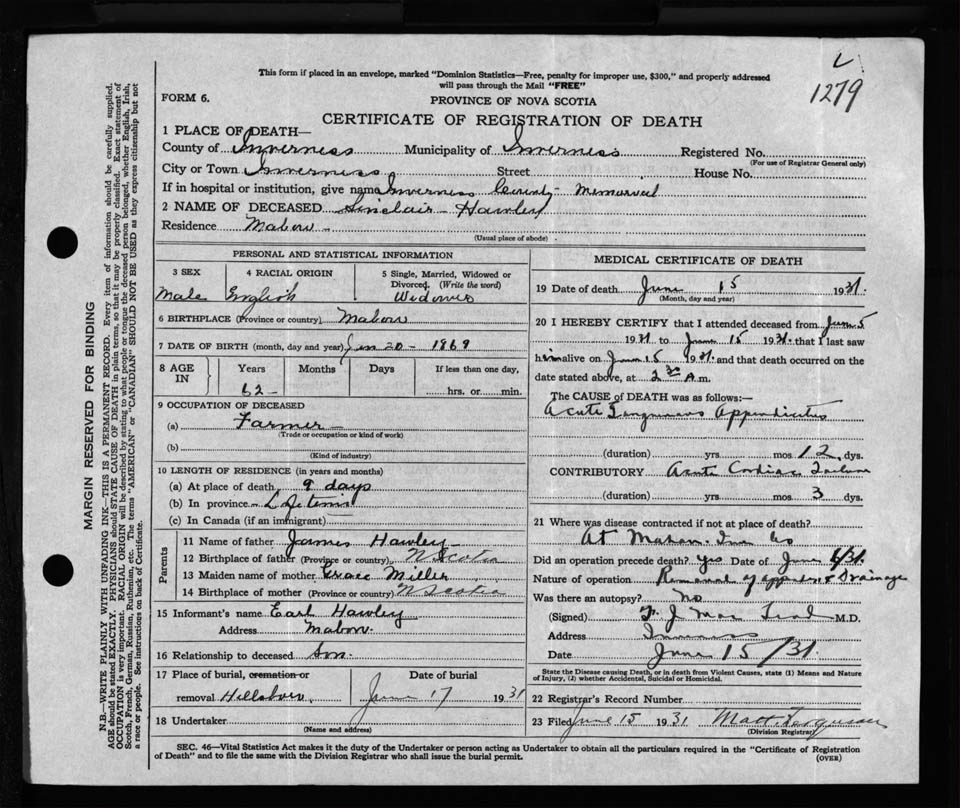 This form if placed in an envelope, marked "Dominion Statistics—Free, penalty for improper use, $300," and properly addressed
will pass through the Mail "FREE"
1279
FORM 6.
PROVINCE OF NOVA SCOTIA
CERTIFICATE OF REGISTRATION OF DEATH
1 PLACE OF DEATH—
County of Inverness Municipality of Inverness Registered No.
(For use of Registrar General only)
City or Town Inverness Street House No.
If in hospital or institution, give name Inverness Memorial
2 NAME OF DECEASED Sinclair Hawley
Residence Mabou
(Usual place of abode)
PERSONAL AND STATISTICAL INFORMATION
3 SEX 4 RACIAL ORIGIN 5 Single, Married, Widowed or
Divorced. (Write the word)
Male English
6 BIRTHPLACE (Province or country) Mabou
7 DATE OF BIRTH (month, day and year) Jan 20 - 1869
8 AGE IN Years Months Days If less than one day,
62 hrs. or min.
9 OCCUPATION OF DECEASED
(a) Farmer
(Trade or occupation or kind of work)
(b)
(Kind of industry)
10 LENGTH OF RESIDENCE (in years and months)
(a) At place of death 9 days
(b) In province Lifetime
(c) In Canada (if an immigrant)
Parents
11 Name of father James Hawley
12 Birthplace of father (Province or country) N Scotia
13 Maiden name of mother Grace Miller
14 Birthplace of mother (Province or country) N Scotia
15 Informant's name Earl Hawley
Address Mabou
16 Relationship to deceased Son.
17 Place of burial, cremation or Date of burial
removal Hillsboro June 17 1931
18 Undertaker
(Name and address)
MEDICAL CERTIFICATE OF DEATH
19 Date of death June 15 1931.
(Month, day and year)
20 I HEREBY CERTIFY that I attended deceased from June 5
1931 to June 15 1931. that I last saw
him alive on June 15 1931. and that death occurred on the
date stated above, at 2 30 A m.
The CAUSE of DEATH was as follows:—
Acute Gangrenous Appendicitis
(duration) yrs mos 12 dys.
CONTRIBUTORY Acute Cardiac Failure
(duration) yrs mos 3 dys.
21 Where was disease contracted if not at place of death?
At Mabou. Inv Co
Did an operation precede death? Yes Date of June /31.
Nature of operation Removal of appendix & Drainage
Was there an autopsy? No
(Signed) J Mac M.D.
Address Inverness
Date June 15/31.
State the Disease causing Death, or in death from Violent Causes, state (1) Means and Nature
of Injury, (ii) whether Accidental, Suicidal or Homicidal.
22 Registrar's Record Number
23 Filed June 15 1931 Matt Ferguson
(Division Registrar)
SEC. 46—Vital Statistics Act makes it the duty of the Undertaker or person acting as Undertaker to obtain all the particulars required in the "Certificate of Registration
of Death" and to file the same with the Division Registrar who shall issue the burial permit.
(OVER)
MARGIN RESERVED FOR BINDING
N.B.—WRITE PLAINLY WITH UNFADING INK—THIS IS A PERMANENT RECORD. Every item of information should be carefully supplied.
AGE should be stated EXACTLY. PHYSICIANS should STATE CAUSE OF DEATH in plain terms, so that it may be properly classified. Exact statement of
OCCUPATION is very important. RACIAL ORIGIN will be described by stating to what people or tongue the deceased person belonged, whether English, Irish,
Scotch, French, German, Russian, Ruthenian, etc. The terms "AMERICAN" or "CANADIAN" SHOULD NOT BE USED as they express citizenship but not
a race or people. See instructions on back of Certificate.